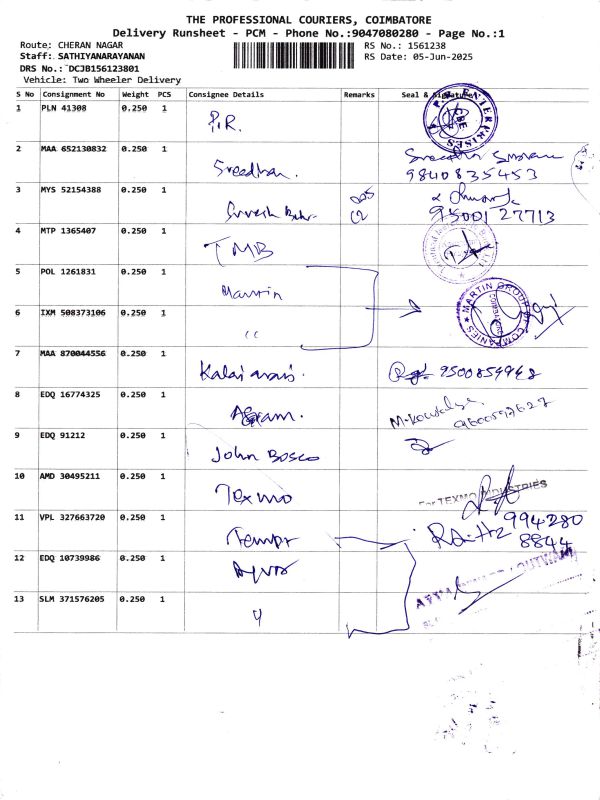 THE PROFESSIONAL COURIERS, COIMBATORE
Delivery Runsheet - PCM - Phone No.:9047080280 - Page No.:1
Route: CHERAN NAGAR
RS No.: 1561238
Staff: SATHIYANARAYANAN
RS Date: 05-Jun-2025
DRS No.: DCJB156123801
Vehicle: Two Wheeler Delivery
S No Consignment No Weight PCS Consignee Details Remarks Seal & Signature
1 PLN 41308 0.250 1 P.R. ENTERPRISES CBE
2 MAA 652130832 0.250 1 Sreedhar. 9840835453
3 MYS 52154388 0.250 1 Suresh 95001 27713
4 MTP 1365407 0.250 1 TMB
5 POL 1261831 0.250 1 Martin
6 IXM 508373106 0.250 1 " MARTIN GROUP OF COMPANIES
7 MAA 870044556 0.250 1 Kalaiarasi.
8 EDQ 16774325 0.250 1 Agram. M.Kowsalya
9 EDQ 91212 0.250 1 John Bosco
10 AMD 30495211 0.250 1 Texmo For TEXMO INDUSTRIES
11 VPL 327663720 0.250 1 994280
8844
12 EDQ 10739986 0.250 1
13 SLM 371576205 0.250 1